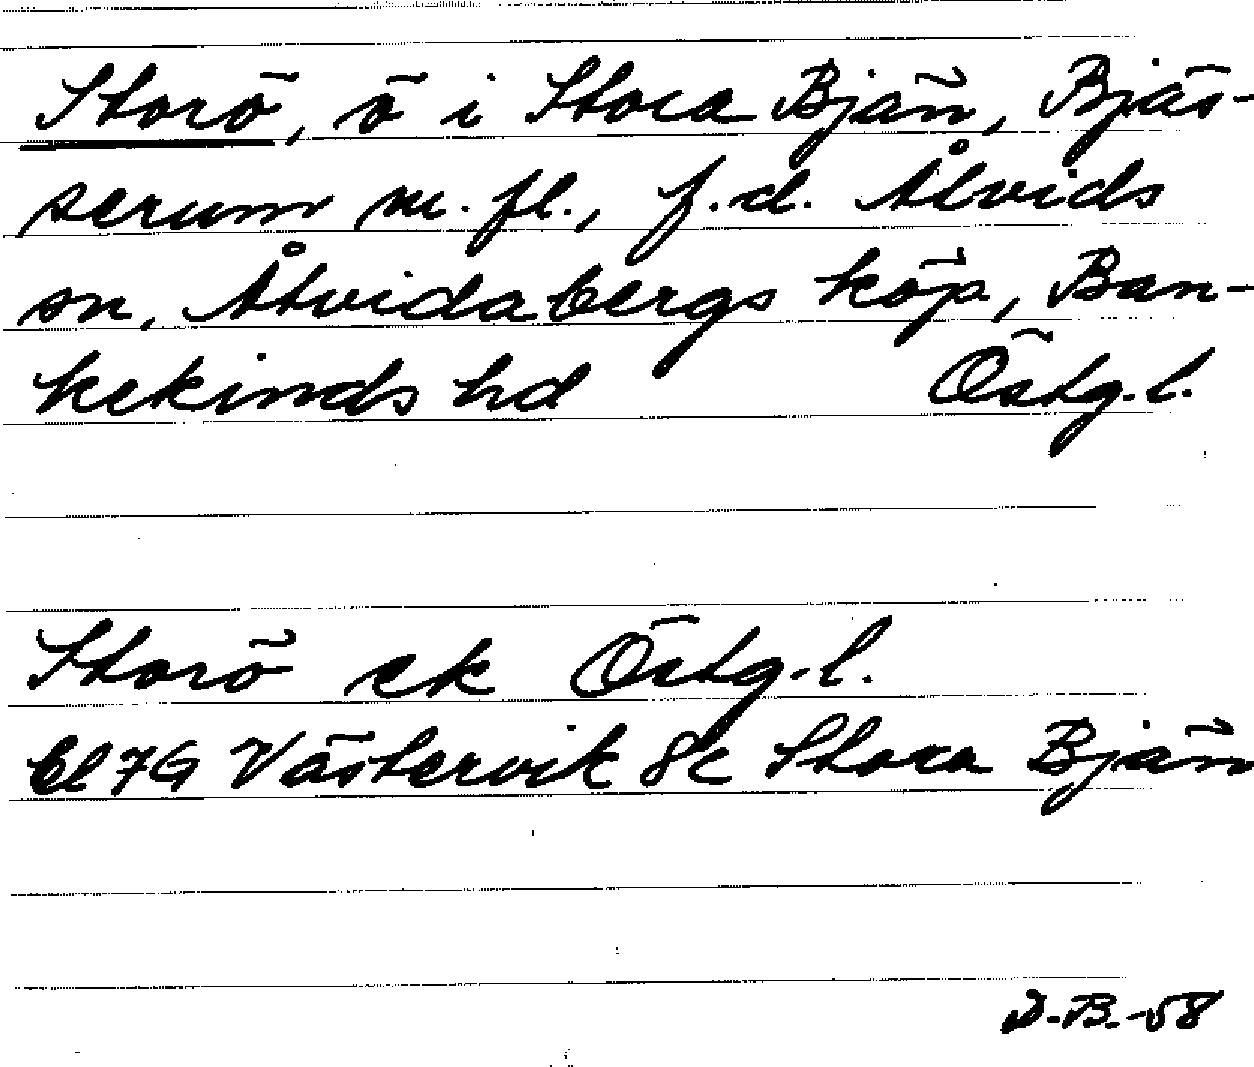 Storö, ö i Stora Bjän, Bjäs-
serum m.fl., f.d. Åtvids
sn, Åtvidabergs köp, Ban-
kekinds hd Östg.l.
Storö ek Östg.l.
Bl 7G Västervik 8c Stora Bjän
D.B.-58